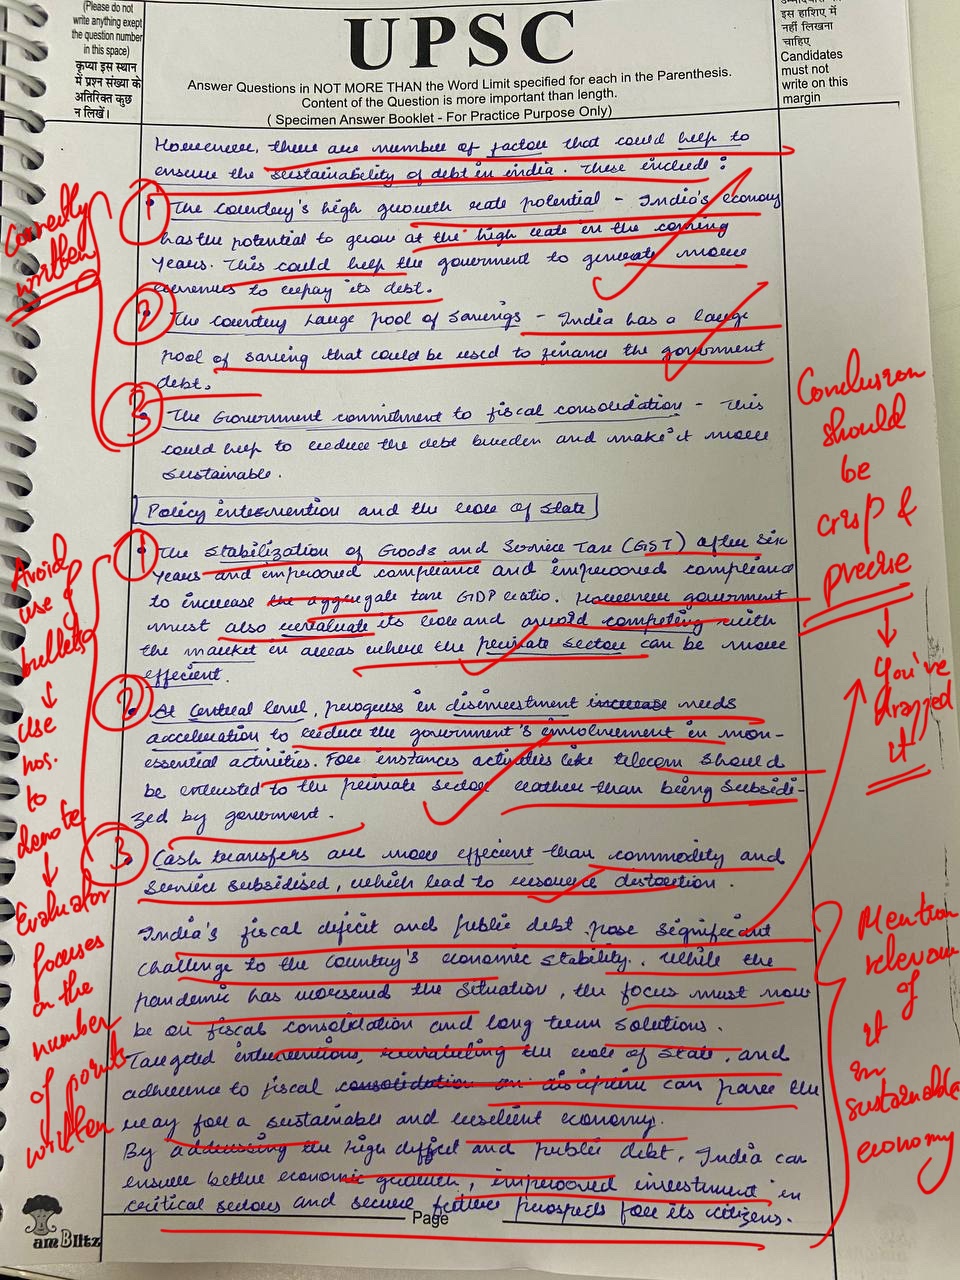 (Please do not
write anything exept
the question number
in this space)
कृप्या इस स्थान
में प्रश्न संख्या के
अतिरिक्त कुछ
न लिखें।
UPSC
Answer Questions in NOT MORE THAN the Word Limit specified for each in the Parenthesis.
Content of the Question is more important than length.
( Specimen Answer Booklet - For Practice Purpose Only)
इस हाशिए में
नहीं लिखना
चाहिए
Candidates
must not
write on this
margin
However, there are number of factors that could help to
ensure the sustainability of debt in india. These include :
1 The country's high growth rate potential - India's economy
has the potential to grow at the high rate in the coming
years. This could help the goverment to generate more
revenues to repay its debt.
2 The country large pool of savings - India has a large
pool of saving that could be used to finance the goverment
debt.
3 The Government commitment to fiscal consolidation - This
could help to reduce the debt burden and make it more
sustainable.
Correctly
written
Policy intervention and the role of state
1 The stabilization of Goods and Service Tax (GST) after six
years and improved compliance and improved compliance
to increase the aggregate tax GDP ratio. However government
must also revaluate its role and avoid competing with
the market in areas where the private sector can be more
effecient.
2 At Central level, progress in disinvestment increase needs
acceleration to reduce the government's involvement in non-
essential activities. For instances activities like telecom should
be entrusted to the private sector rather than being subsidi-
zed by goverment.
3 Cash transfers are more effecient than commodity and
service subsidised, which lead to resource distortion.
India's fiscal deficit and public debt pose significant
challenge to the country's economic stability. While the
pandemic has worsened the situation, the focus must now
be on fiscal consolidation and long term solutions.
Targeted interventions, revaluting the role of state, and
adherence to fiscal consolidation on discipline can pave the
way for a sustainable and resilient economy.
By addressing the high difficit and public debt, India can
ensure better economic growth, improved investment in
critical sectors and secure future prospects for its citizens.
Avoid
use of
bullets
↓
Use
nos.
to
denote
↓
Evaluator
focuses
on the
number
of points
written
Conclusion
should
be
crisp &
precise
↓
You've
dragged
it
Mention
of
it
in
sustainable
economy
Page
am Blitz